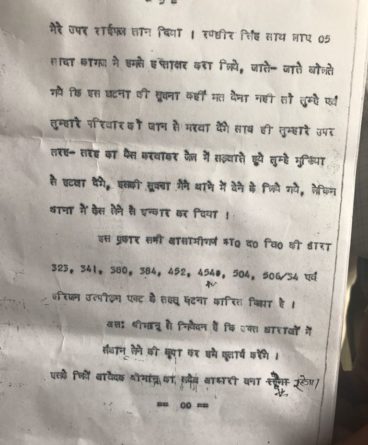 मेरे उपर राईफल तान दिया । रणधीर सिंह साथ लाए 05
सादा कागज मे हमसे हस्ताक्षर करा लिये, जाते- जाते बोलते
गये कि इस घटना की सूचना कहीं मत देना नहीं तो तुम्हे एवं
तुम्हारे परिवार को जान से मरवा देंगे साथ ही तुम्हारे उपर
तरह- तरह का केस करवाकर जेल में सड़वाते हुये तुम्हे मुखिया
से हटवा देंगे, इसकी सूचना मैने थाने में देने के लिये गये, लेकिन
थाना में केस लेने से इन्कार कर दिया ।
इस प्रकार सभी आसामीगण भा0 द0 वि0 की धारा
323, 341, 380, 384, 452, 504, 506/34 एवं
हरिजन उत्पीड़न एक्ट के तहत घटना कारित किया है ।
अतः श्रीमान् से निवेदन है कि उक्त धाराओं में
संज्ञान लेने की कृपा कर हमे कृतार्थ करेंगे ।
इसके लिये आवेदक श्रीमान् का सदैव आभारी बना रहेगा।
== 00 ==